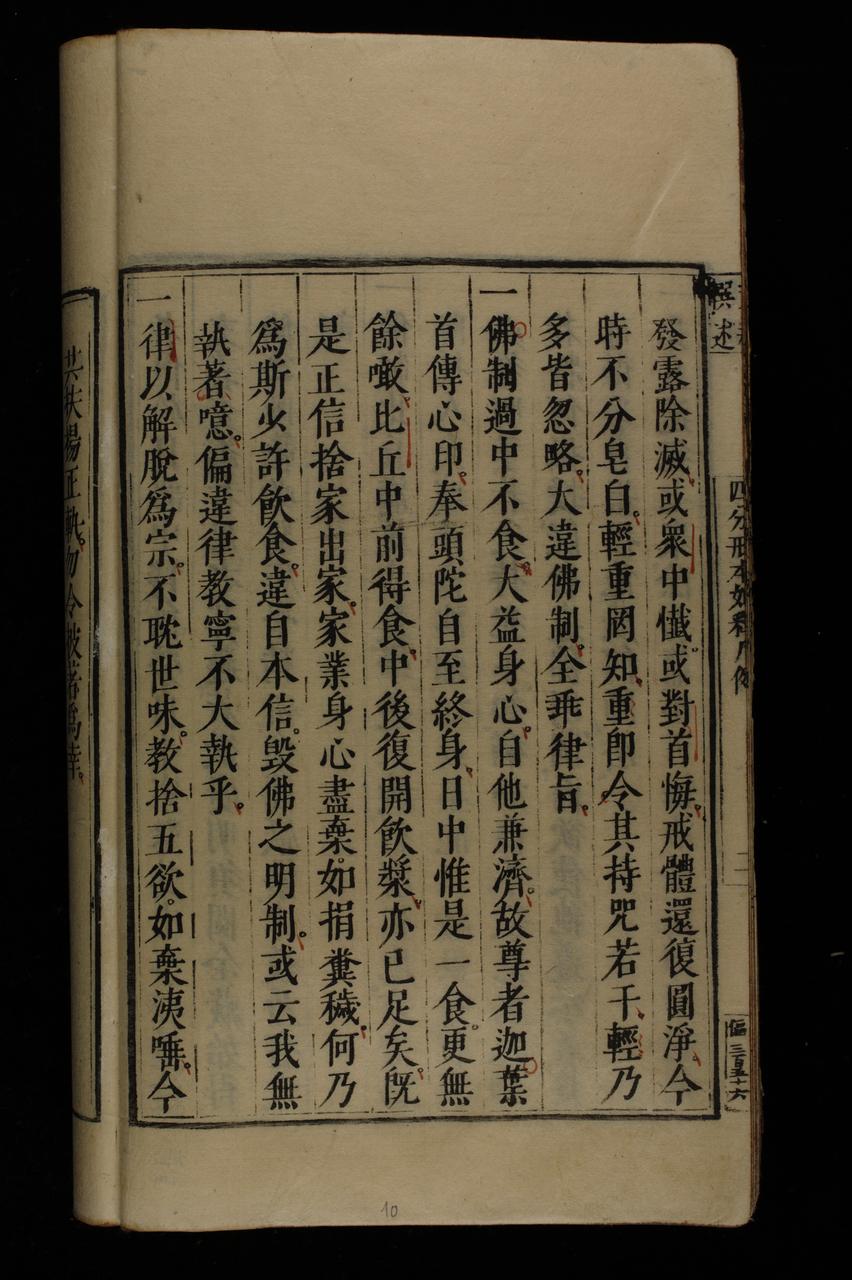 撰述
四分戒本如釋凡例
二
傷三百五十六
發露除滅或眾中懺或對首悔戒體還復圓淨今
時不分皂白輕重罔知重即令其持咒若干輕乃
多皆忽略大違佛制全乖律旨
一佛制過中不食大益身心自他兼濟故尊者迦葉
首傳心印奉頭陀自至終身日中惟是一食更無
餘噉比丘中前得食中後復開飲漿亦已足矣既
是正信捨家出家家業身心盡棄如捐糞穢何乃
為斯少許飲食違自本信毀佛之明制或云我無
執著噫偏違律教寧不大執乎
一律以解脫為宗不耽世味教捨五欲如棄洟唾今
共扶揚正軌勿令彼者為幸
10